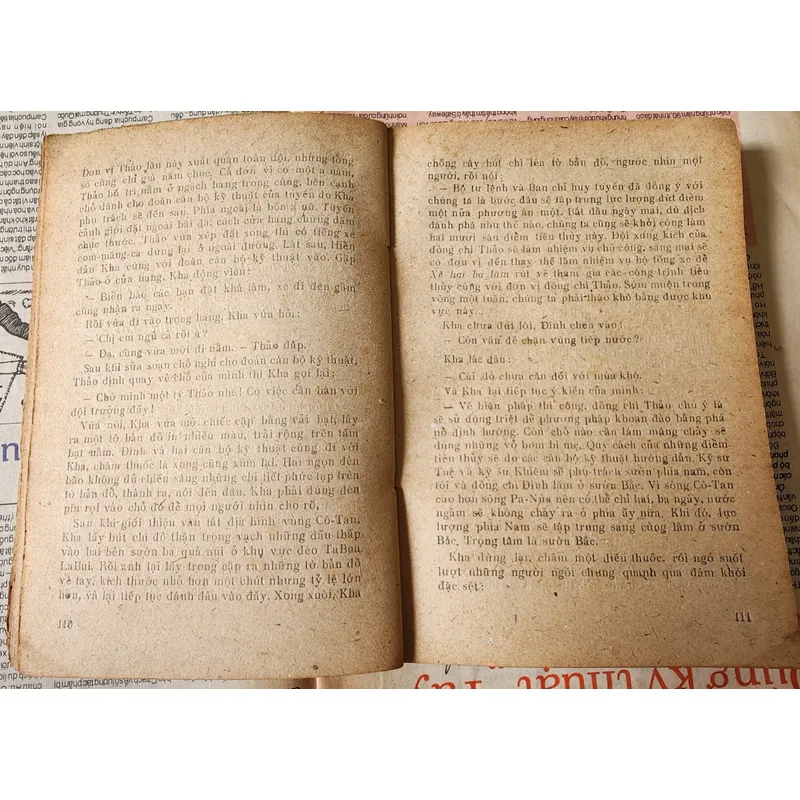 Đơn vị Thảo lần này xuất quân toàn đội, nhưng tổng
số cũng chỉ già năm chục. Cả đơn vị có một a nấm,
Thảo bố trí nằm ở ngách hang trong cùng, bên cạnh
chỗ dành cho đoàn cán bộ kỹ thuật của tuyến do Kha
phụ trách sẽ đến sau. Phía ngoài là bốn a
cảnh giới đặt ngoài bãi đá, cách cửa hang chừng dăm
chục thước. Thảo vừa xếp đặt xong, thì có tiếng xe
com-măng-ca dừng lại ở ngoài đường. Lát sau, Hiền
dẫn Kha cùng với đoàn cán bộ kỹ thuật vào. Gặp
Thảo ở cửa hang, Kha động viên:
— Biển báo các bạn đặt khá lắm, xe đi đến gầm
cũng nhận ra ngay.
Rồi vừa đi vào trong hang, Kha vừa hỏi:
— Chị em ngủ cả rồi à?
— Dạ, cũng vừa mới đi nằm. — Thảo đáp.
Sau khi sửa soạn chỗ nghỉ cho đoàn cán bộ kỹ thuật,
Thảo định quay về chỗ của mình thì Kha gọi lại:
— Chờ mình một tý Thảo nhé! Có việc cần bàn với
đội trưởng đấy!
Vừa nói, Kha vừa mở chiếc cặp bằng vải bạt, lấy
ra một tờ bản đồ in nhiều màu, trải rộng, trên tấm
bạt nằm. Đình và hai cán bộ kỹ thuật cùng đi với
Kha, châm thuốc lá xong cũng xúm lại. Hai ngọn đèn
bão không đủ chiếu sáng những chi tiết phức tạp trên
tờ bản đồ, thành ra, nói đến đâu, Kha phải dùng đèn
pin rọi vào chỗ đó để mọi người nhìn cho rõ.
Sau khi giới thiệu vắn tắt địa hình vùng Cô-Tan,
Kha lấy bút chì đỏ thận trọng vạch những dấu thập
vào hai bên sườn ba quả núi ở khu vực đèo TaBua
LaBui. Rồi anh lại lấy trong cặp ra những tờ bản đồ
vẽ tay, kích thước nhỏ hơn một chút nhưng tỷ lệ lớn
hơn, và lại tiếp tục đánh dấu vào đấy. Xong xuôi, Kha
110
chống cây bút chì lên tờ bản đồ, ngước nhìn một
người, rồi nói:
— Bộ tư lệnh và Ban chỉ huy tuyến đã đồng ý với
chúng ta là bước đầu sẽ tập trung lực lượng dứt điểm
một nửa phương án một, bắt đầu ngày mai, dù địch
đánh phá như thế nào, chúng ta cũng sẽ khởi công làm
hai mươi sáu điểm tiêu thủy này. Đội xung kích của
đồng chí Thảo sẽ làm nhiệm vụ chủ công, sáng mai sẽ
có đơn vị đến thay thế làm nhiệm vụ bộ tổng xe để
Xê hai ba lăm rút về tham gia các công trình tiêu
thủy cùng với đơn vị đồng chí Thảo. Sớm muộn trong
vòng một tuần, chúng ta phải tháo khô bằng được khu
vực này...
Kha chưa dứt lời, Đình chen vào:
— Còn vấn đề chặn vùng tiếp nước?
Kha lắc đầu:
— Cái đó chưa cần đối với mùa khô.
Và Kha lại tiếp tục ý kiến của mình:
— Về biện pháp thi công, đồng chí Thảo chú ý là
sẽ sử dụng triệt để phương pháp khoan đào bằng phá
nổ định hướng. Còn chỗ nào cần làm máng chảy sẽ
dùng những vỏ bom bi mẹ. Quy cách của những điểm
tiêu thủy sẽ do các cán bộ kỹ thuật hướng dẫn. Kỹ sư
Tuệ và kỹ sư Khiêm sẽ phụ trách sườn phía nam, còn
tôi và đồng chí Đình làm ở sườn Bắc. Vì sông Cô-Tan
cao hơn sông Pa-Nụa nên có thể chỉ hai, ba ngày, nước
ngầm sẽ không chảy ra ở phía ấy nữa. Khi đó, lực
lượng phía Nam sẽ tập trung sang cùng làm ở sườn
Bắc. Trọng tâm là sườn Bắc.
Kha dừng lại, châm một điếu thuốc, rồi ngó suốt
lượt những người ngồi chung quanh qua đám khói
đặc sệt:
111